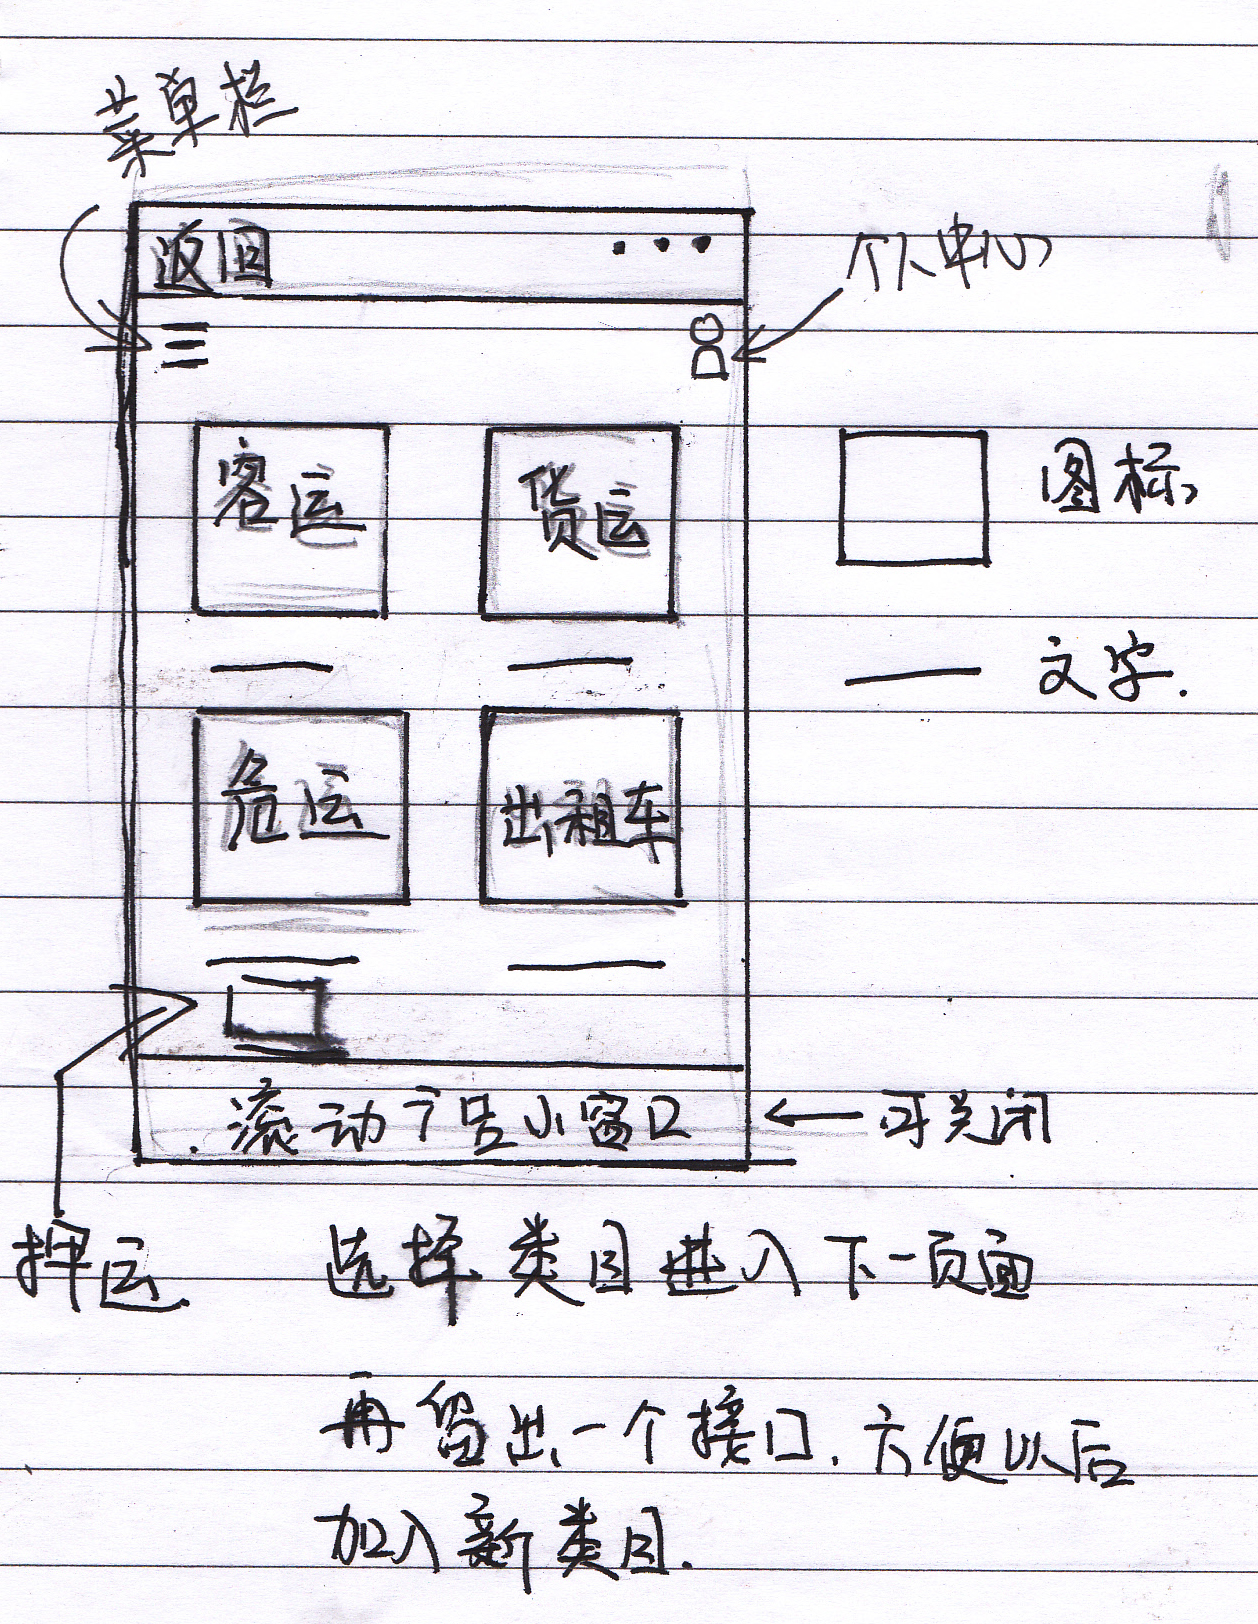 菜单栏
返回
个人中心
客运
货运
图标
文字.
危运
出租车
流动广告小窗口
可关闭
押运
选择类目进入下一页面
再留出一个接口.方便以后
加入新类目.